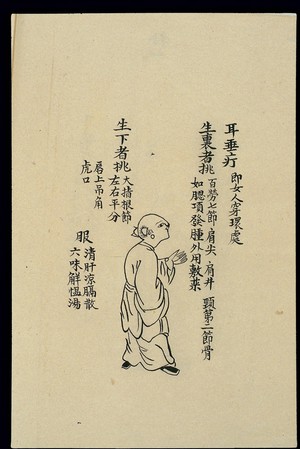 耳垂疔 即女人穿環處
生裏者挑 百勞七節 肩尖 肩井 頸第二節骨
如腮項發腫外用敷藥
生下者挑 大指根節
左右平分
唇上吊角
虎口
服 清肝凉膈散
六味解慍湯